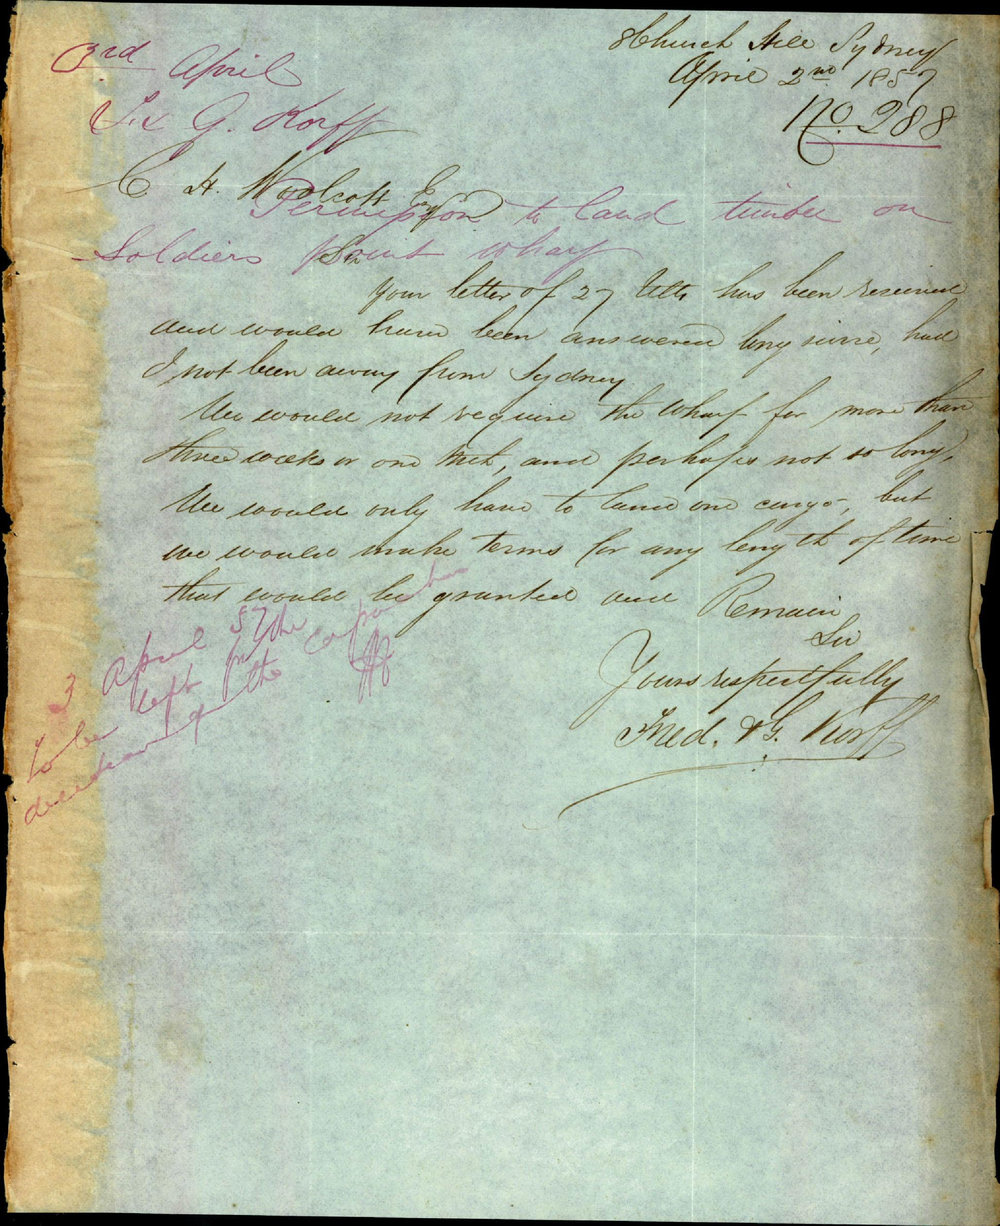 8 Church Hill Sydney
April 2nd. 1857
No. 288
3rd April
G. Korff
C. H. Woolcott Esq
Permission to land timber on
Soldiers point wharf
Sir
Your letter of 27 Ulto has been received
and would have been answered long since, had
I not been away from Sydney
We would not require the wharf for more than
three weeks or one mth, and perhaps not so long,
We would only have to land one cargo, but
we would make terms for any length of time
that would be granted and Remain
Sir
Yours respectfully
Fred. & G. Korff
3 April 57
to be left in the
discretion of the corporation